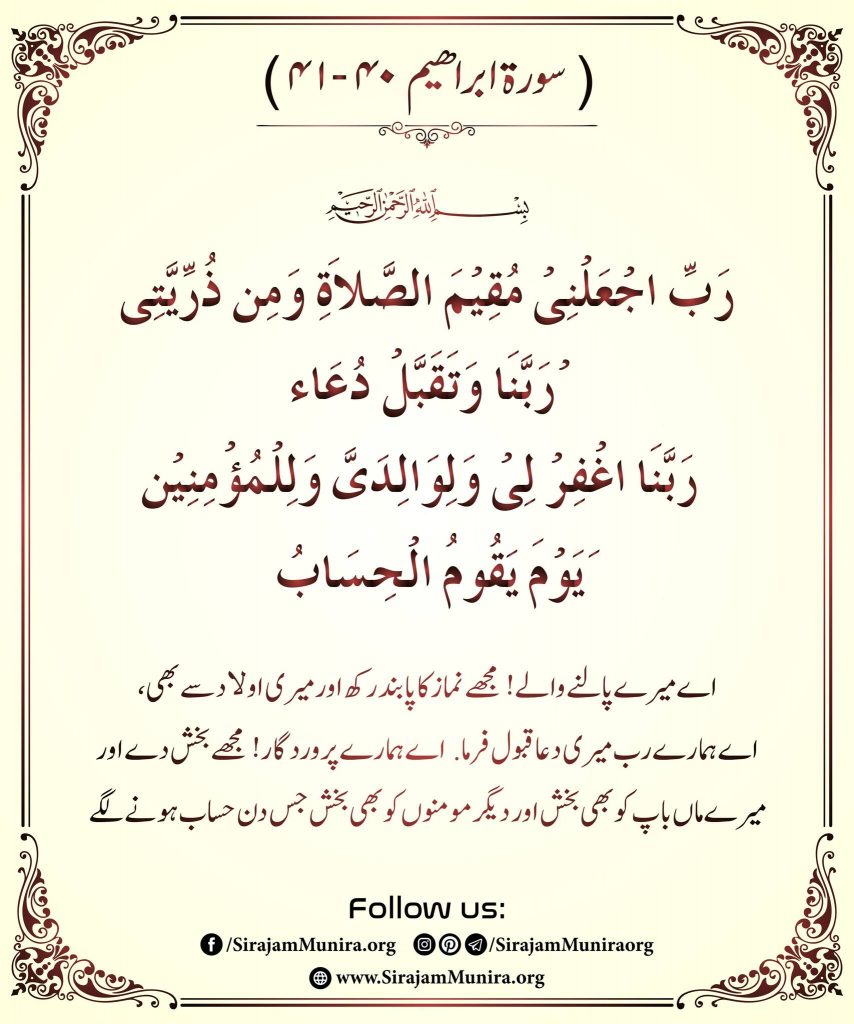 ( سورۃ ابراھیم ۴۰-۴۱ )
بِسْمِ اللهِ الرَّحْمٰنِ الرَّحِيْمِ
رَبِّ اجْعَلْنِیْ مُقِیْمَ الصَّلاَةِ وَمِن ذُرِّیَّتِی
ْرَبَّنَا وَتَقَبَّلْ دُعَاء
رَبَّنَا اغْفِرْ لِیْ وَلِوَالِدَیَّ وَلِلْمُؤْمِنِیْن
َیَوْمَ یَقُومُ الْحِسَابُ
اے میرے پالنے والے! مجھے نماز کا پابند رکھ اور میری اولاد سے بھی،
اے ہمارے رب میری دعا قبول فرما. اے ہمارے پروردگار! مجھے بخش دے اور
میرے ماں باپ کو بھی بخش اور دیگر مومنوں کو بھی بخش جس دن حساب ہونے لگے
Follow us:
/SirajamMunira.org /SirajamMuniraorg
www.SirajamMunira.org